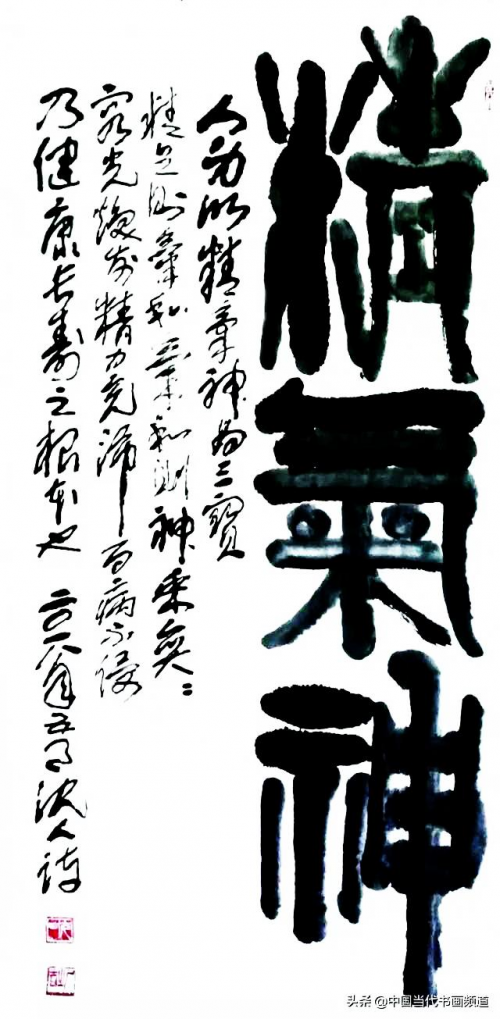 精氣神
人身以精氣神為三寶
精足则氣和氣和则神采奕奕
容光焕发精力充沛百病不侵
乃健康长壽之根本也 二〇一八年五月沈人诗
头条 @中国当代书画频道